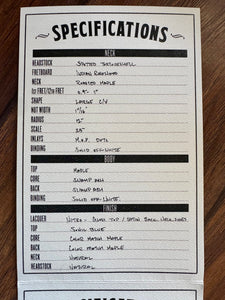 SPECIFICATIONS
NECK
HEADSTOCK SPOTTED
FRETBOARD INDIAN ROSEWOOD
NECK ROASTED MAPLE
1ST FRET/12TH FRET 1"
SHAPE LARGE C/V
NUT WIDTH 1 11/16"
RADIUS 12"
SCALE 25"
INLAYS M.O.P. DOTS
BINDING SOLID OFF-WHITE
BODY
TOP MAPLE
CORE SWAMP ASH
BACK SWAMP ASH
BINDING SOLID OFF-WHITE
FINISH
LACQUER NITRO - GLOSS TOP / SATIN BACK, NECK, SIDES
TOP BLUE
CORE COLOR MATCH MAPLE
BACK COLOR MATCH MAPLE
NECK NATURAL
HEADSTOCK NATURAL